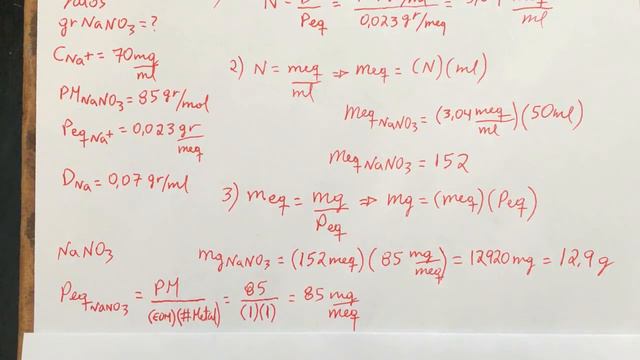 gr NaNO₃ = ?
C Na⁺ = 70 mg/ml
PM NaNO₃ = 85 gr/mol
Peq Na⁺ = 0,023 gr/meq
D Na = 0,07 gr/ml
NaNO₃
Peq NaNO₃ = PM/(EOM)(#Metal) = 85/(1)(1) = 85 mg/meq
N = Peq 0,023 gr/meq meq/ml
2) N = meq/ml ⇒ meq = (N)(ml)
Meq NaNO₃ = (3,04 meq/ml)(50ml)
Meq NaNO₃ = 152
3) meq = mg/Peq ⇒ mg = (meq)(Peq)
mg NaNO₃ = (152 meq)(85 mg/meq) = 12920 mg = 12,9 g